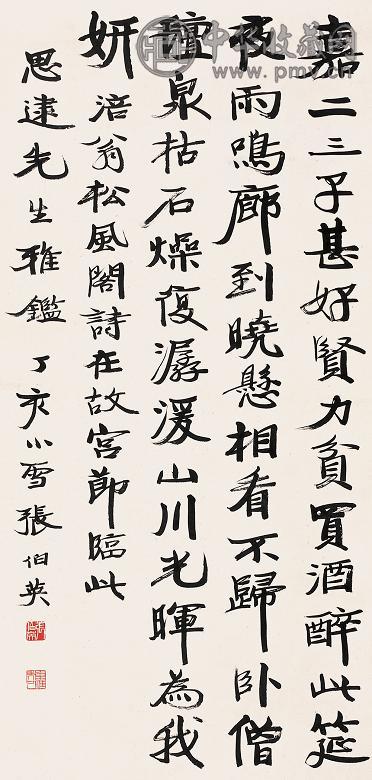 嘉二三子甚好賢力貧買酒醉此筵
夜雨鳴廊到曉懸相看不歸卧僧
氊泉枯石燥復潺湲山川光暉為我
妍涪翁松風閣詩在故宮節臨此
思逮先生雅鑑丁亥小雪張伯英
中华收藏网
www.pmv.cn